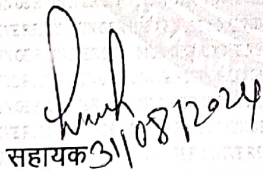 सहायक 31/08/2024